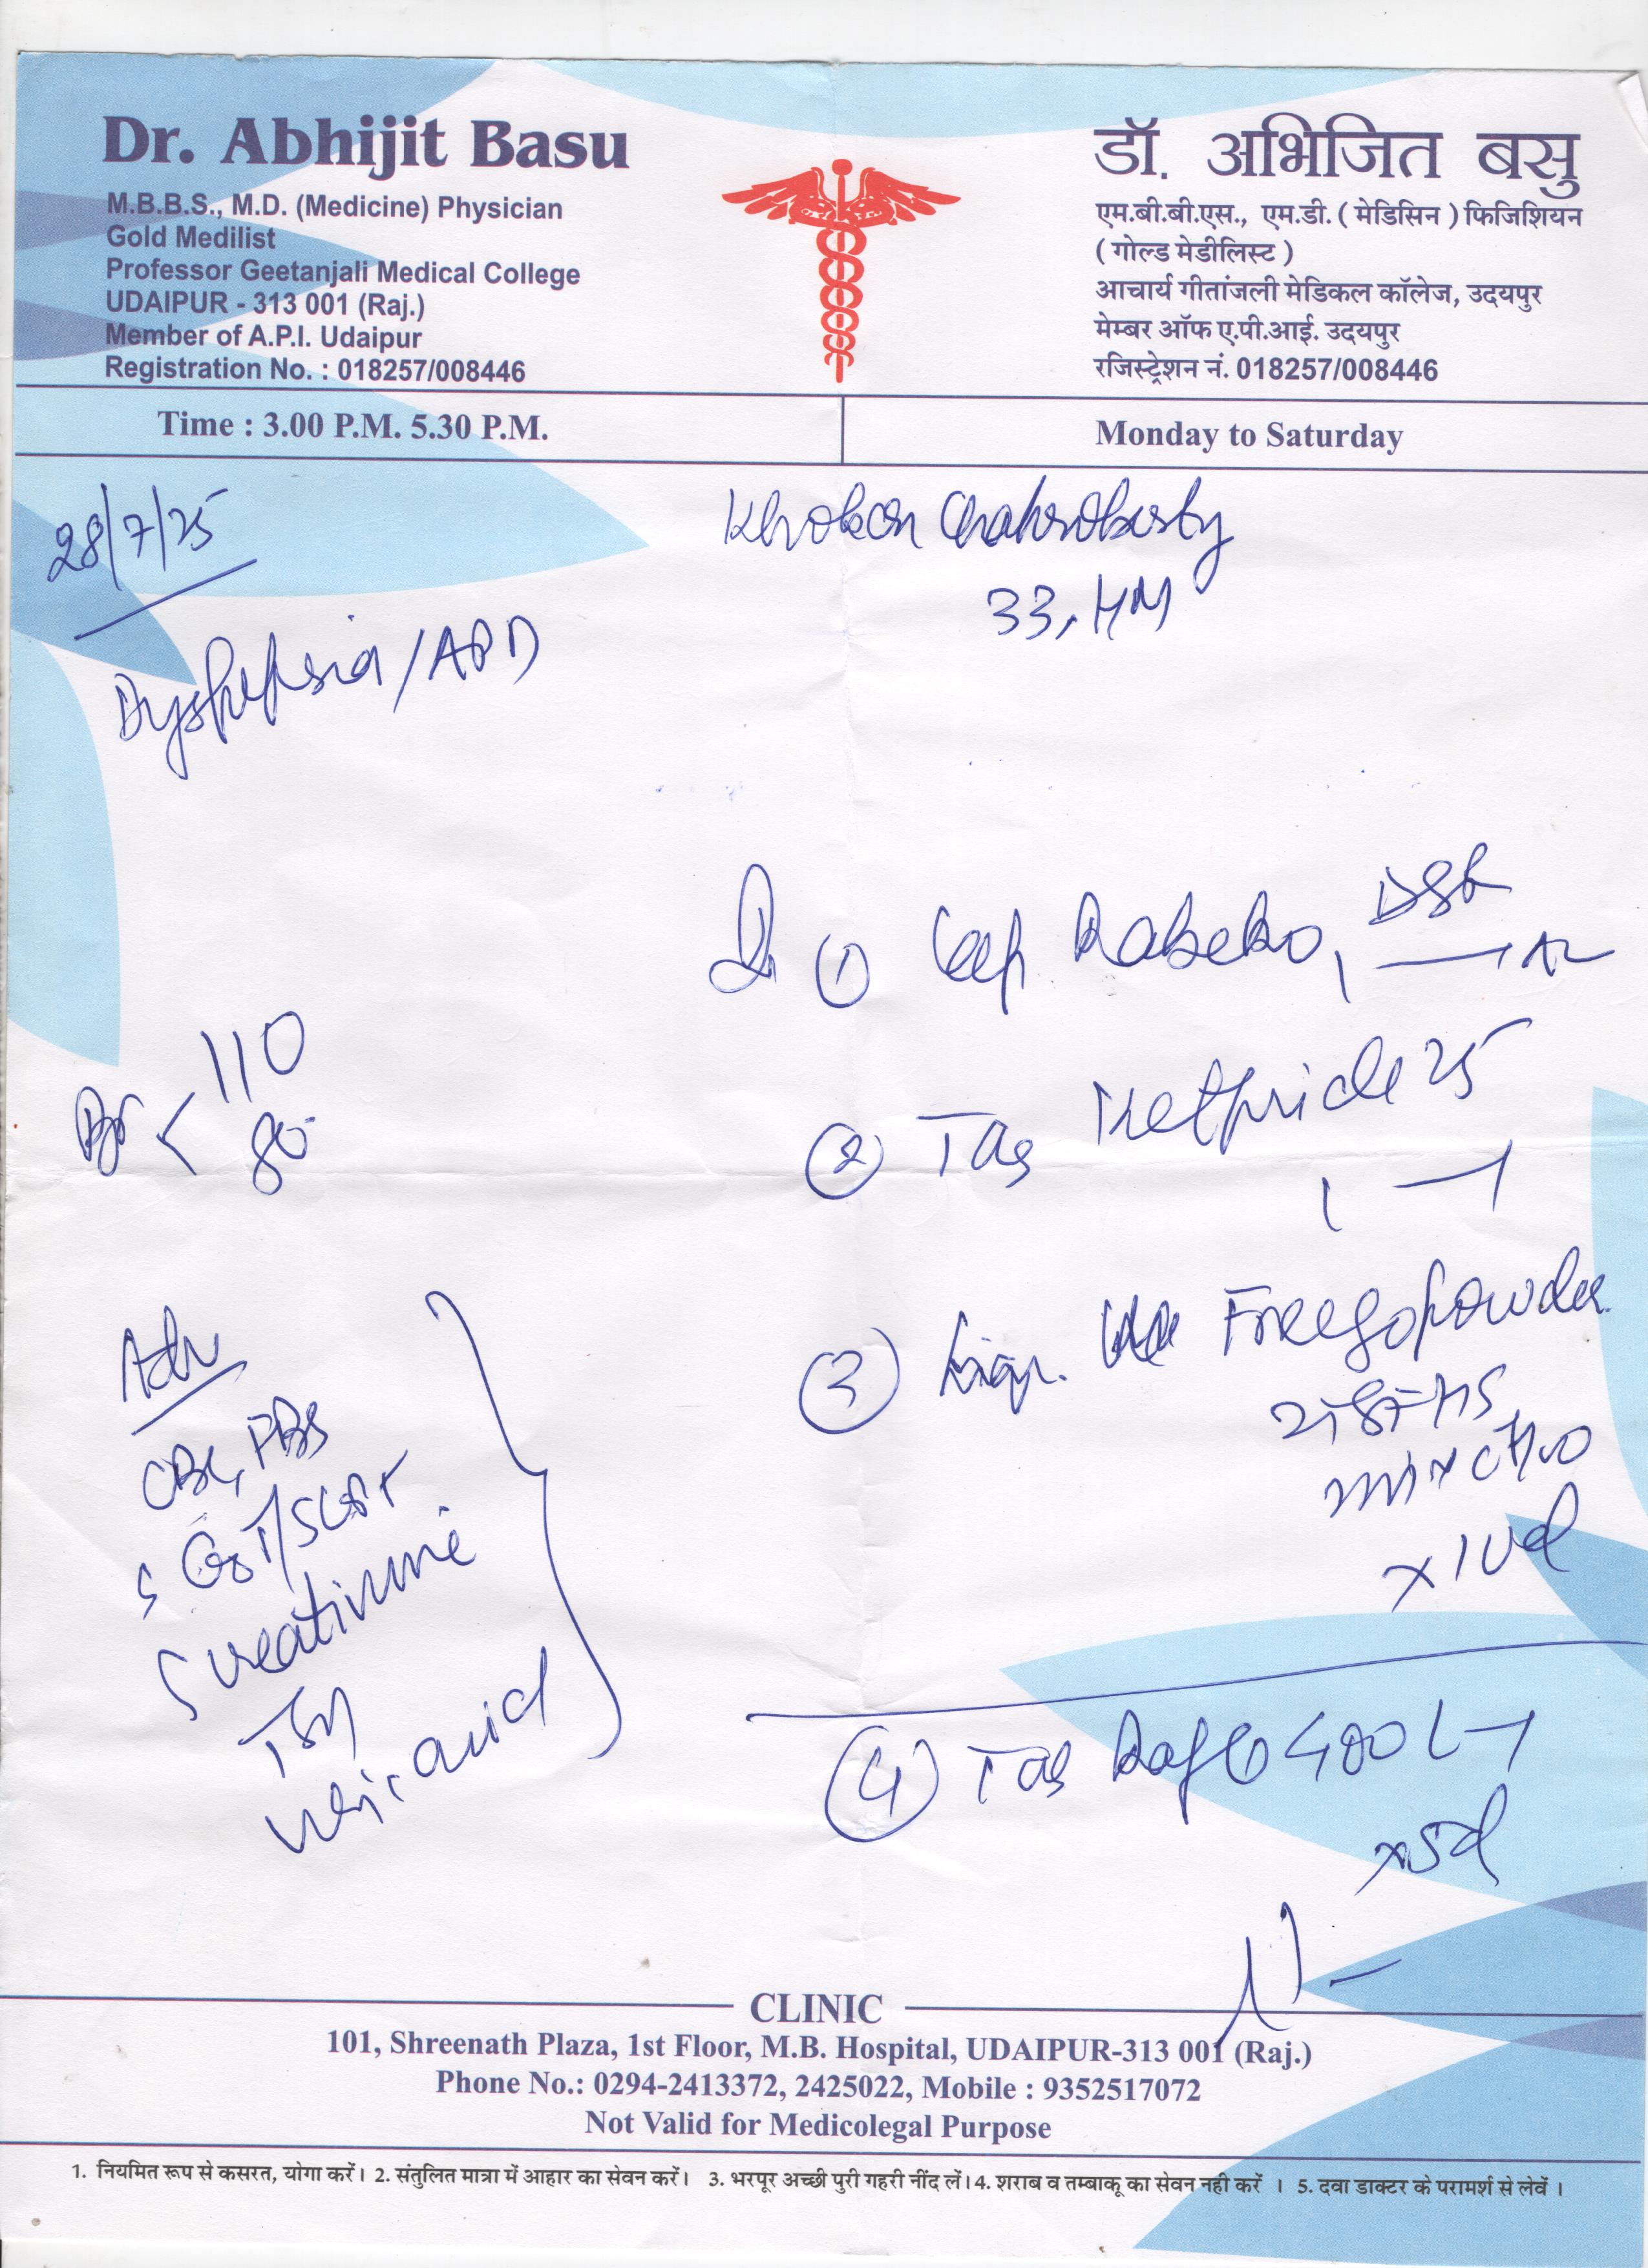 Dr. Abhijit Basu
M.B.B.S., M.D. (Medicine) Physician
Gold Medilist
Professor Geetanjali Medical College
UDAIPUR - 313 001 (Raj.)
Member of A.P.I. Udaipur
Registration No. : 018257/008446
डॉ. अभिजित बसु
एम.बी.बी.एस., एम.डी. ( मेडिसिन ) फिजिशियन
( गोल्ड मेडीलिस्ट )
आचार्य गीतांजली मेडिकल कॉलेज, उदयपुर
मेम्बर ऑफ ए.पी.आई. उदयपुर
रजिस्ट्रेशन नं. 018257/008446
Time : 3.00 P.M. 5.30 P.M.
Monday to Saturday
28/7/25
Khokon Chakroborty
33,
Dyspepsia/APD
① Cap. DSR
1
110
80
② Tab 25
1
③ Freego powder
x 10d
Adv
CBC, FBS
SGOT/SGPT
S creatinine
TSH
Uric acid
④ Tab 400
x5d
CLINIC
101, Shreenath Plaza, 1st Floor, M.B. Hospital, UDAIPUR-313 001 (Raj.)
Phone No.: 0294-2413372, 2425022, Mobile : 9352517072
Not Valid for Medicolegal Purpose
1. नियमित रूप से कसरत, योगा करें। 2. संतुलित मात्रा में आहार का सेवन करें। 3. भरपूर अच्छी पुरी गहरी नींद लें। 4. शराब व तम्बाकू का सेवन नही करें । 5. दवा डाक्टर के परामर्श से लेवें ।